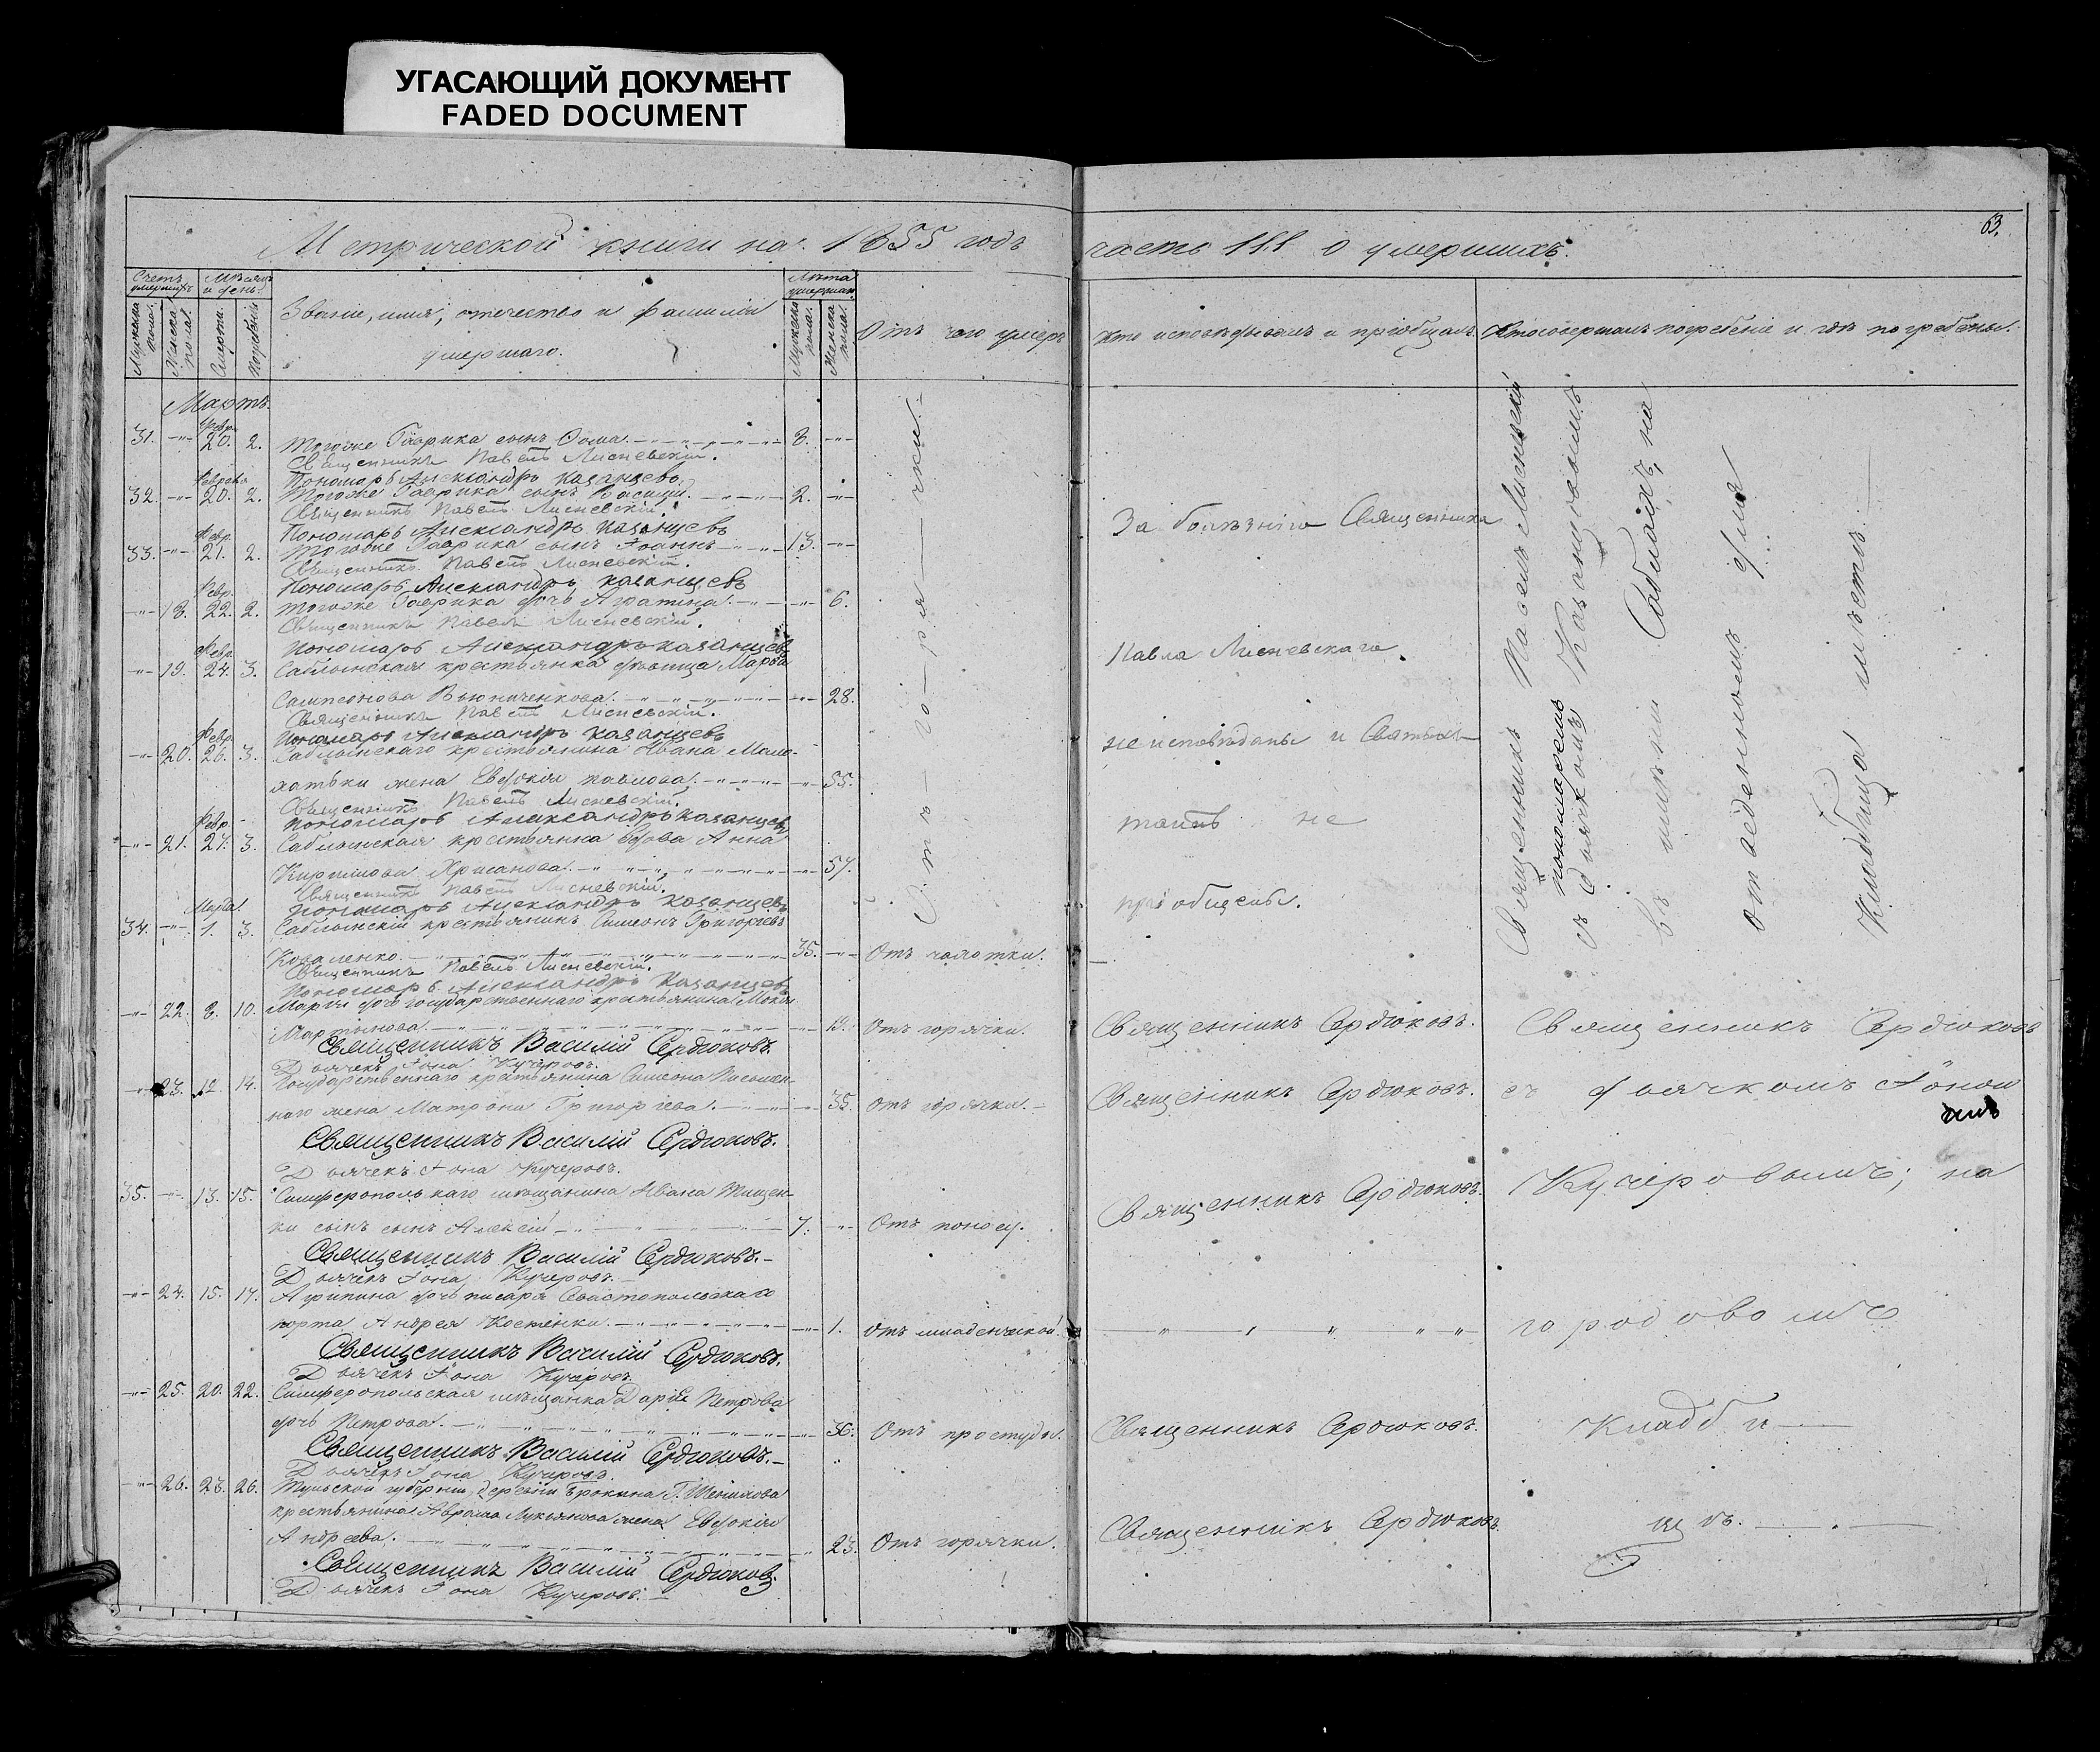 УГАСАЮЩИЙ ДОКУМЕНТ
FADED DOCUMENT
63.
Метрической книги на 1855 годъ часть III о умершихъ.
Счетъ умершихъ
Мѣсяцъ и день
Званіе, имя, отечество и фамилія умершаго.
Лѣта умершаго
Отъ чего умеръ
Кто исповѣдывалъ и пріобщалъ.
Кто совершалъ погребеніе и гдѣ погребены.
Мужеска пола.
Женска пола.
Смерти.
Погребенія
Мужеска пола.
Женска пола.
Мартъ.
Февр.
31. -„- 20. 2. Тогоже Гаврика сынъ Ѳома. 8. -„-
Священникъ Павелъ Лисневскій.
Пономарь Александръ Казанцевъ.
Февраля
32. -„- 20. 2. Тогоже Гаврика сынъ Василій. 2. -„-
Священникъ Павелъ Лисневскій.
Пономарь Александръ Казанцевъ
Февр.
33. -„- 21. 2. Тогоже Гаврика сынъ Іоаннъ 13. -„-
Священникъ Павелъ Лисневскій.
Пономарь Александръ Казанцевъ
Февр.
-„- 18. 22. 2. Тогоже Гаврика дочь Агапина. -„- 6.
Священникъ Павелъ Лисневскій.
Пономарь Александръ Казанцевъ
Февр.
-„- 19. 24. 3. Саблынская крестьянка дѣвица Марѳа
Сампсонова Вьюниченкова. -„- 28.
Священникъ Павелъ Лисневскій.
Пономарь Александръ Казанцевъ
Февр.
-„- 20. 26. 3. Саблынскаго крестьянина Ивана Мало-
хатьки жена Евдокія Павлова. -„- 55.
Священникъ Павелъ Лисневскій.
Пономарь Александръ Казанцевъ
Февр.
-„- 21. 27. 3. Саблынская крестьянка вдова Анна
Кирилова -„- 57.
Священникъ Павелъ Лисневскій.
Пономарь Александръ Казанцевъ
Марта
34. -„- 1. 3. Саблынскій крестьянинъ Симеонъ Григоріевъ
Коваленко. 35. -„- Отъ чахотки.
Священникъ Павелъ Лисневскій.
Пономарь Александръ Казанцевъ
Отъ горячки.
За болѣзнію Священника
Павла Лисневскаго
не исповѣданы и Святыхъ
таинъ не
пріобщены.
Священникъ Павелъ Лисневскій
съ пономаремъ
дьячкомъ Казанцовымъ
въ имѣніи Саблахъ, на
отведенномъ для
Кладбища мѣстѣ.
-„- 22. 8. 10. Марія дочь государственнаго крестьянина
Мартынова. -„- 19. Отъ горячки. Священникъ Сердюковъ.
Священникъ Василій Сердюковъ.
Дьячекъ Іона Кучеровъ.
-„- 23. 12. 14. Государственнаго крестьянина Симеона Письмен-
наго жена Матрона Григорьева. -„- 35. Отъ горячки. Священникъ Сердюковъ.
Священникъ Василій Сердюковъ.
Дьячекъ Іона Кучеровъ.
35. -„- 13. 15. Симферопольскаго мѣщанина Ивана Тищен-
ки сынъ сынъ Алексій 7. -„- Отъ поносу. Священникъ Сердюковъ.
Священникъ Василій Сердюковъ.
Дьячекъ Іона Кучеровъ.
-„- 24. 15. 17. Агрипина дочь писаря Севастопольскаго
порта Андрея Костенки. -„- 1. Отъ младенческой.
Священникъ Василій Сердюковъ.
Дьячекъ Іона Кучеровъ.
-„- 25. 20. 22. Симферопольская мѣщанка Дарія Петрова
дочь Петрова. -„- 36. Отъ простуды. Священникъ Сердюковъ.
Священникъ Василій Сердюковъ.
Дьячекъ Іона Кучеровъ.
-„- 26. 23. 26. Тульской губерніи, деревни Г.
крестьянина Аврама Лукьянова жена Евдокія
Андреева. -„- 23. Отъ горячки. Священникъ Сердюковъ.
Священникъ Василій Сердюковъ.
Дьячекъ Іона Кучеровъ.
Священникъ Сердюковъ
съ дьячкомъ Іоною
Кучеровымъ, на
городовомъ
Кладби-
щѣ.